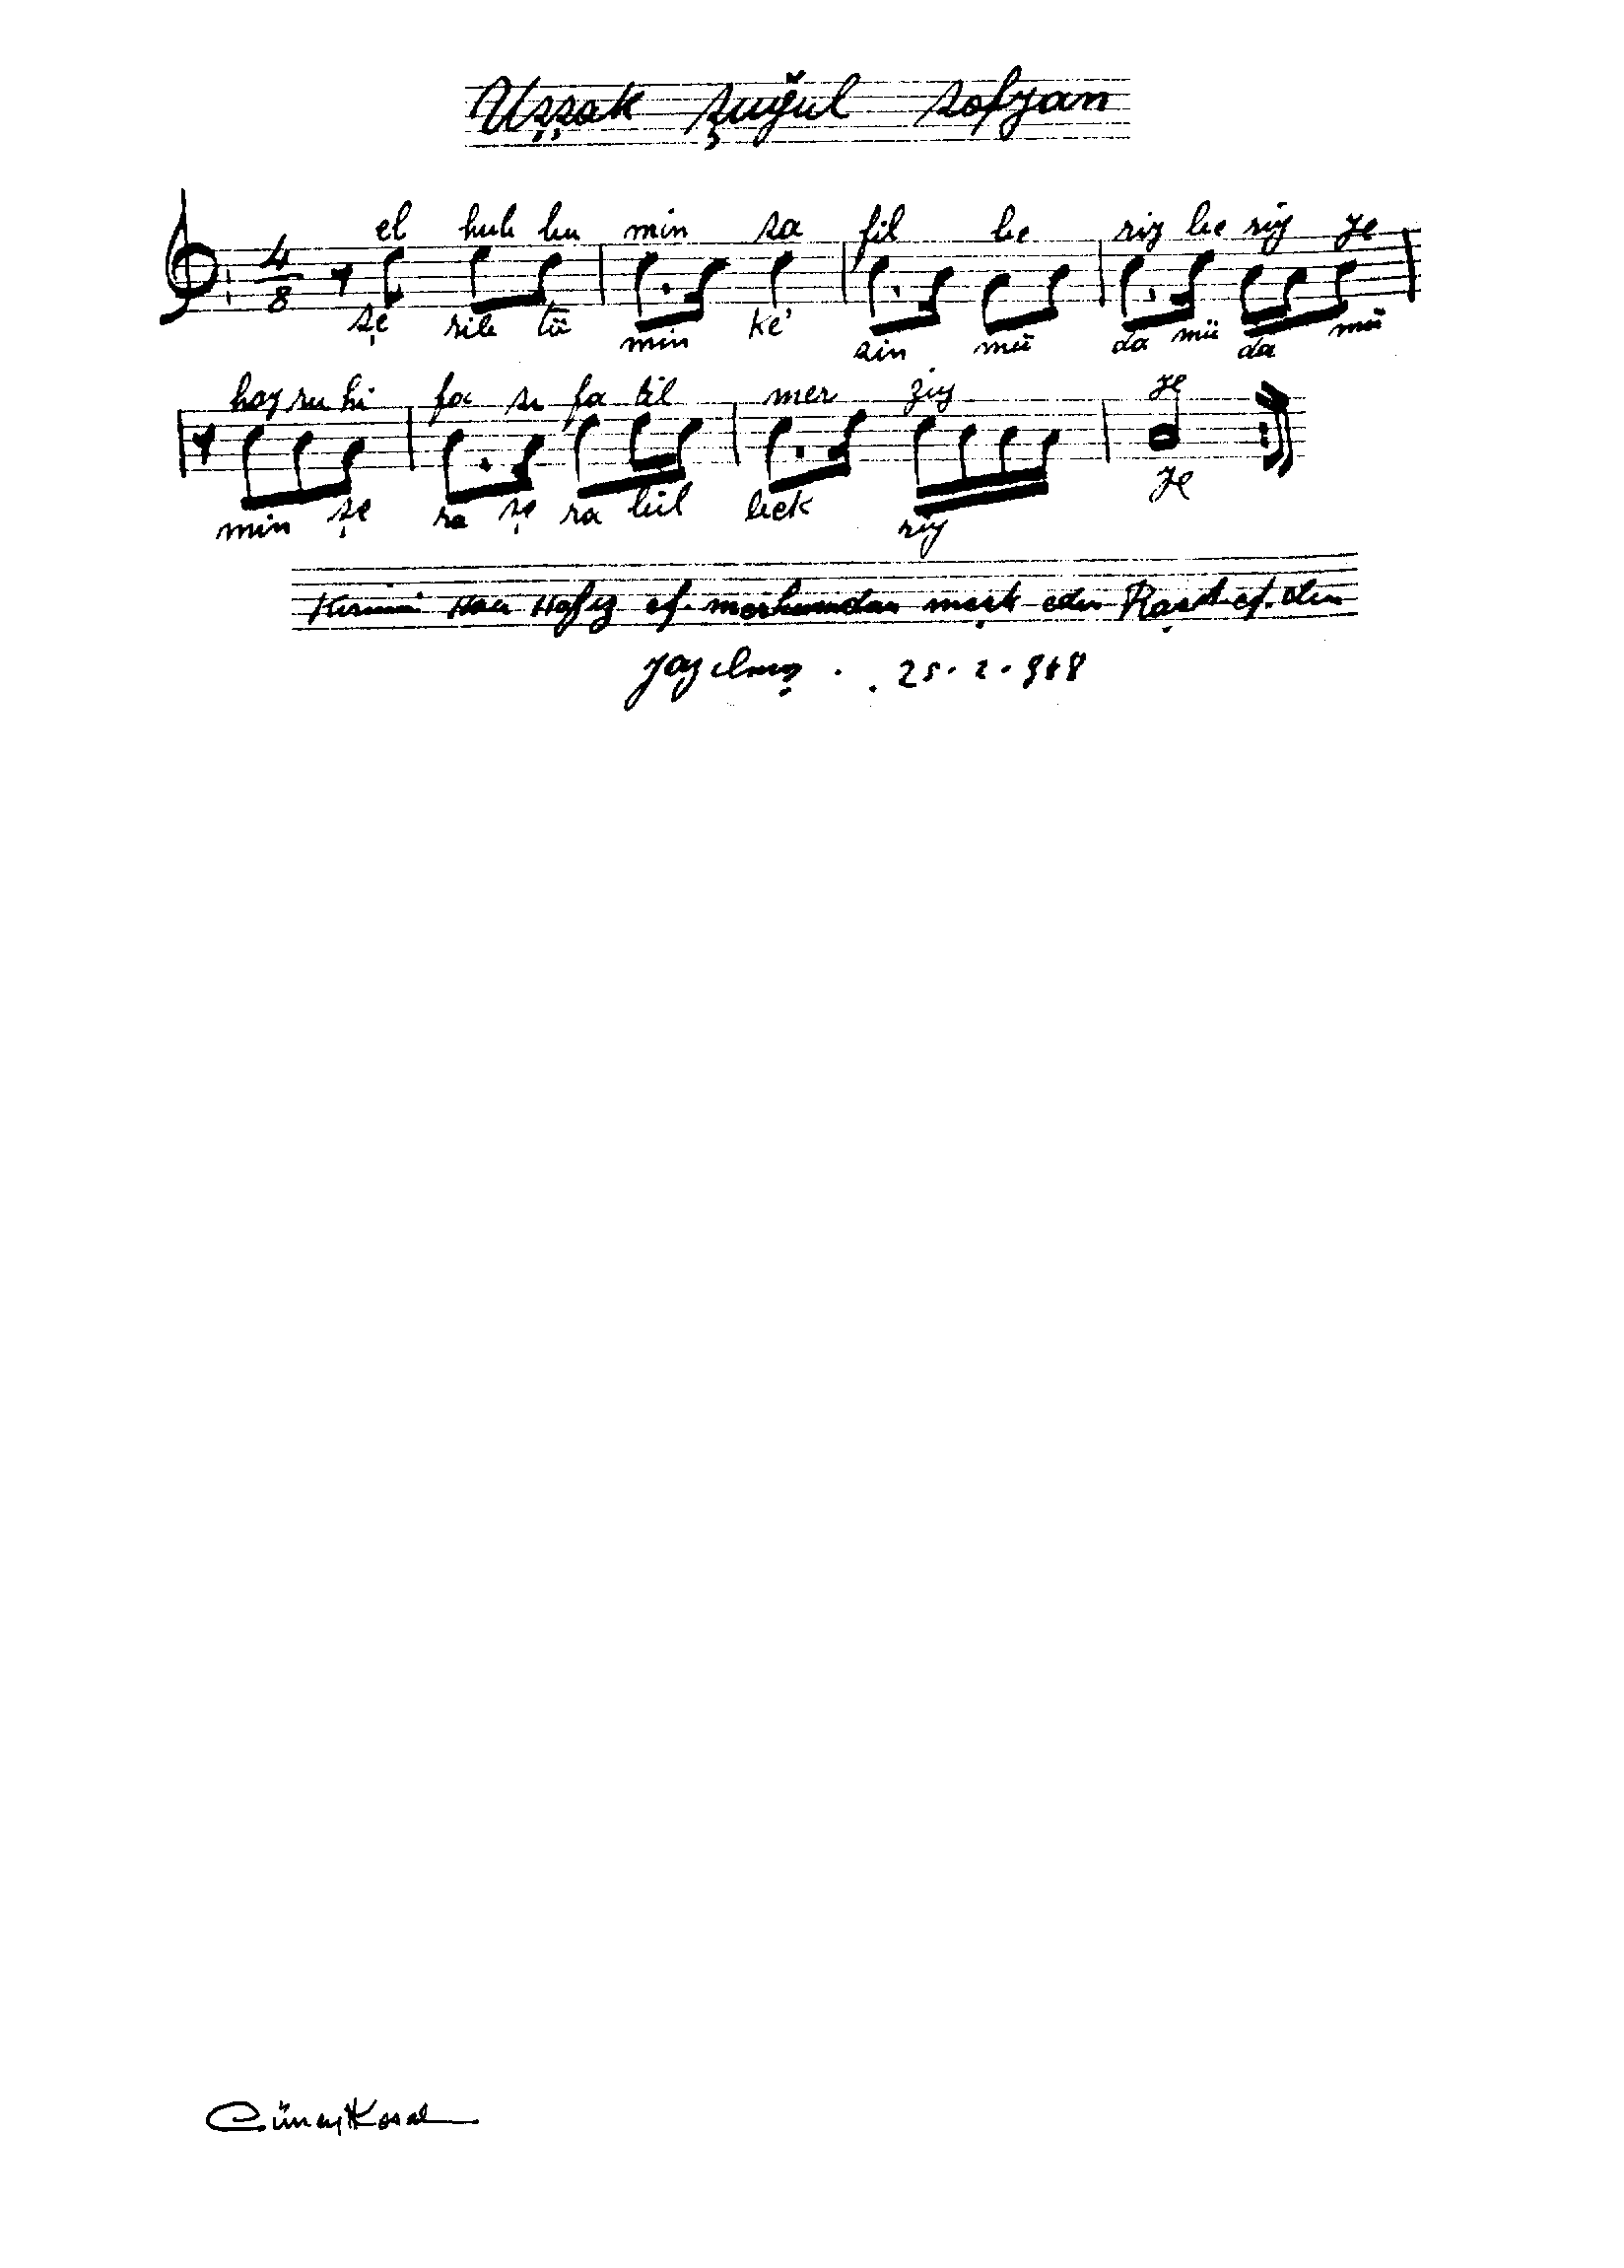 Uşşak şuğul sofyan
el hub bu min sa fil be riy be riy ye
4/8
şe rib tü min ke' sin mü da mü da mü
hay ru hi fa si fa til mer ziy ye
min şe ra şe ra bül bek riy ye
Kırımi Hacı Hafız ef. merhumdan meşk eden Raşit ef. den
yazılmış . 25.2.948
Cüneyt Kosal